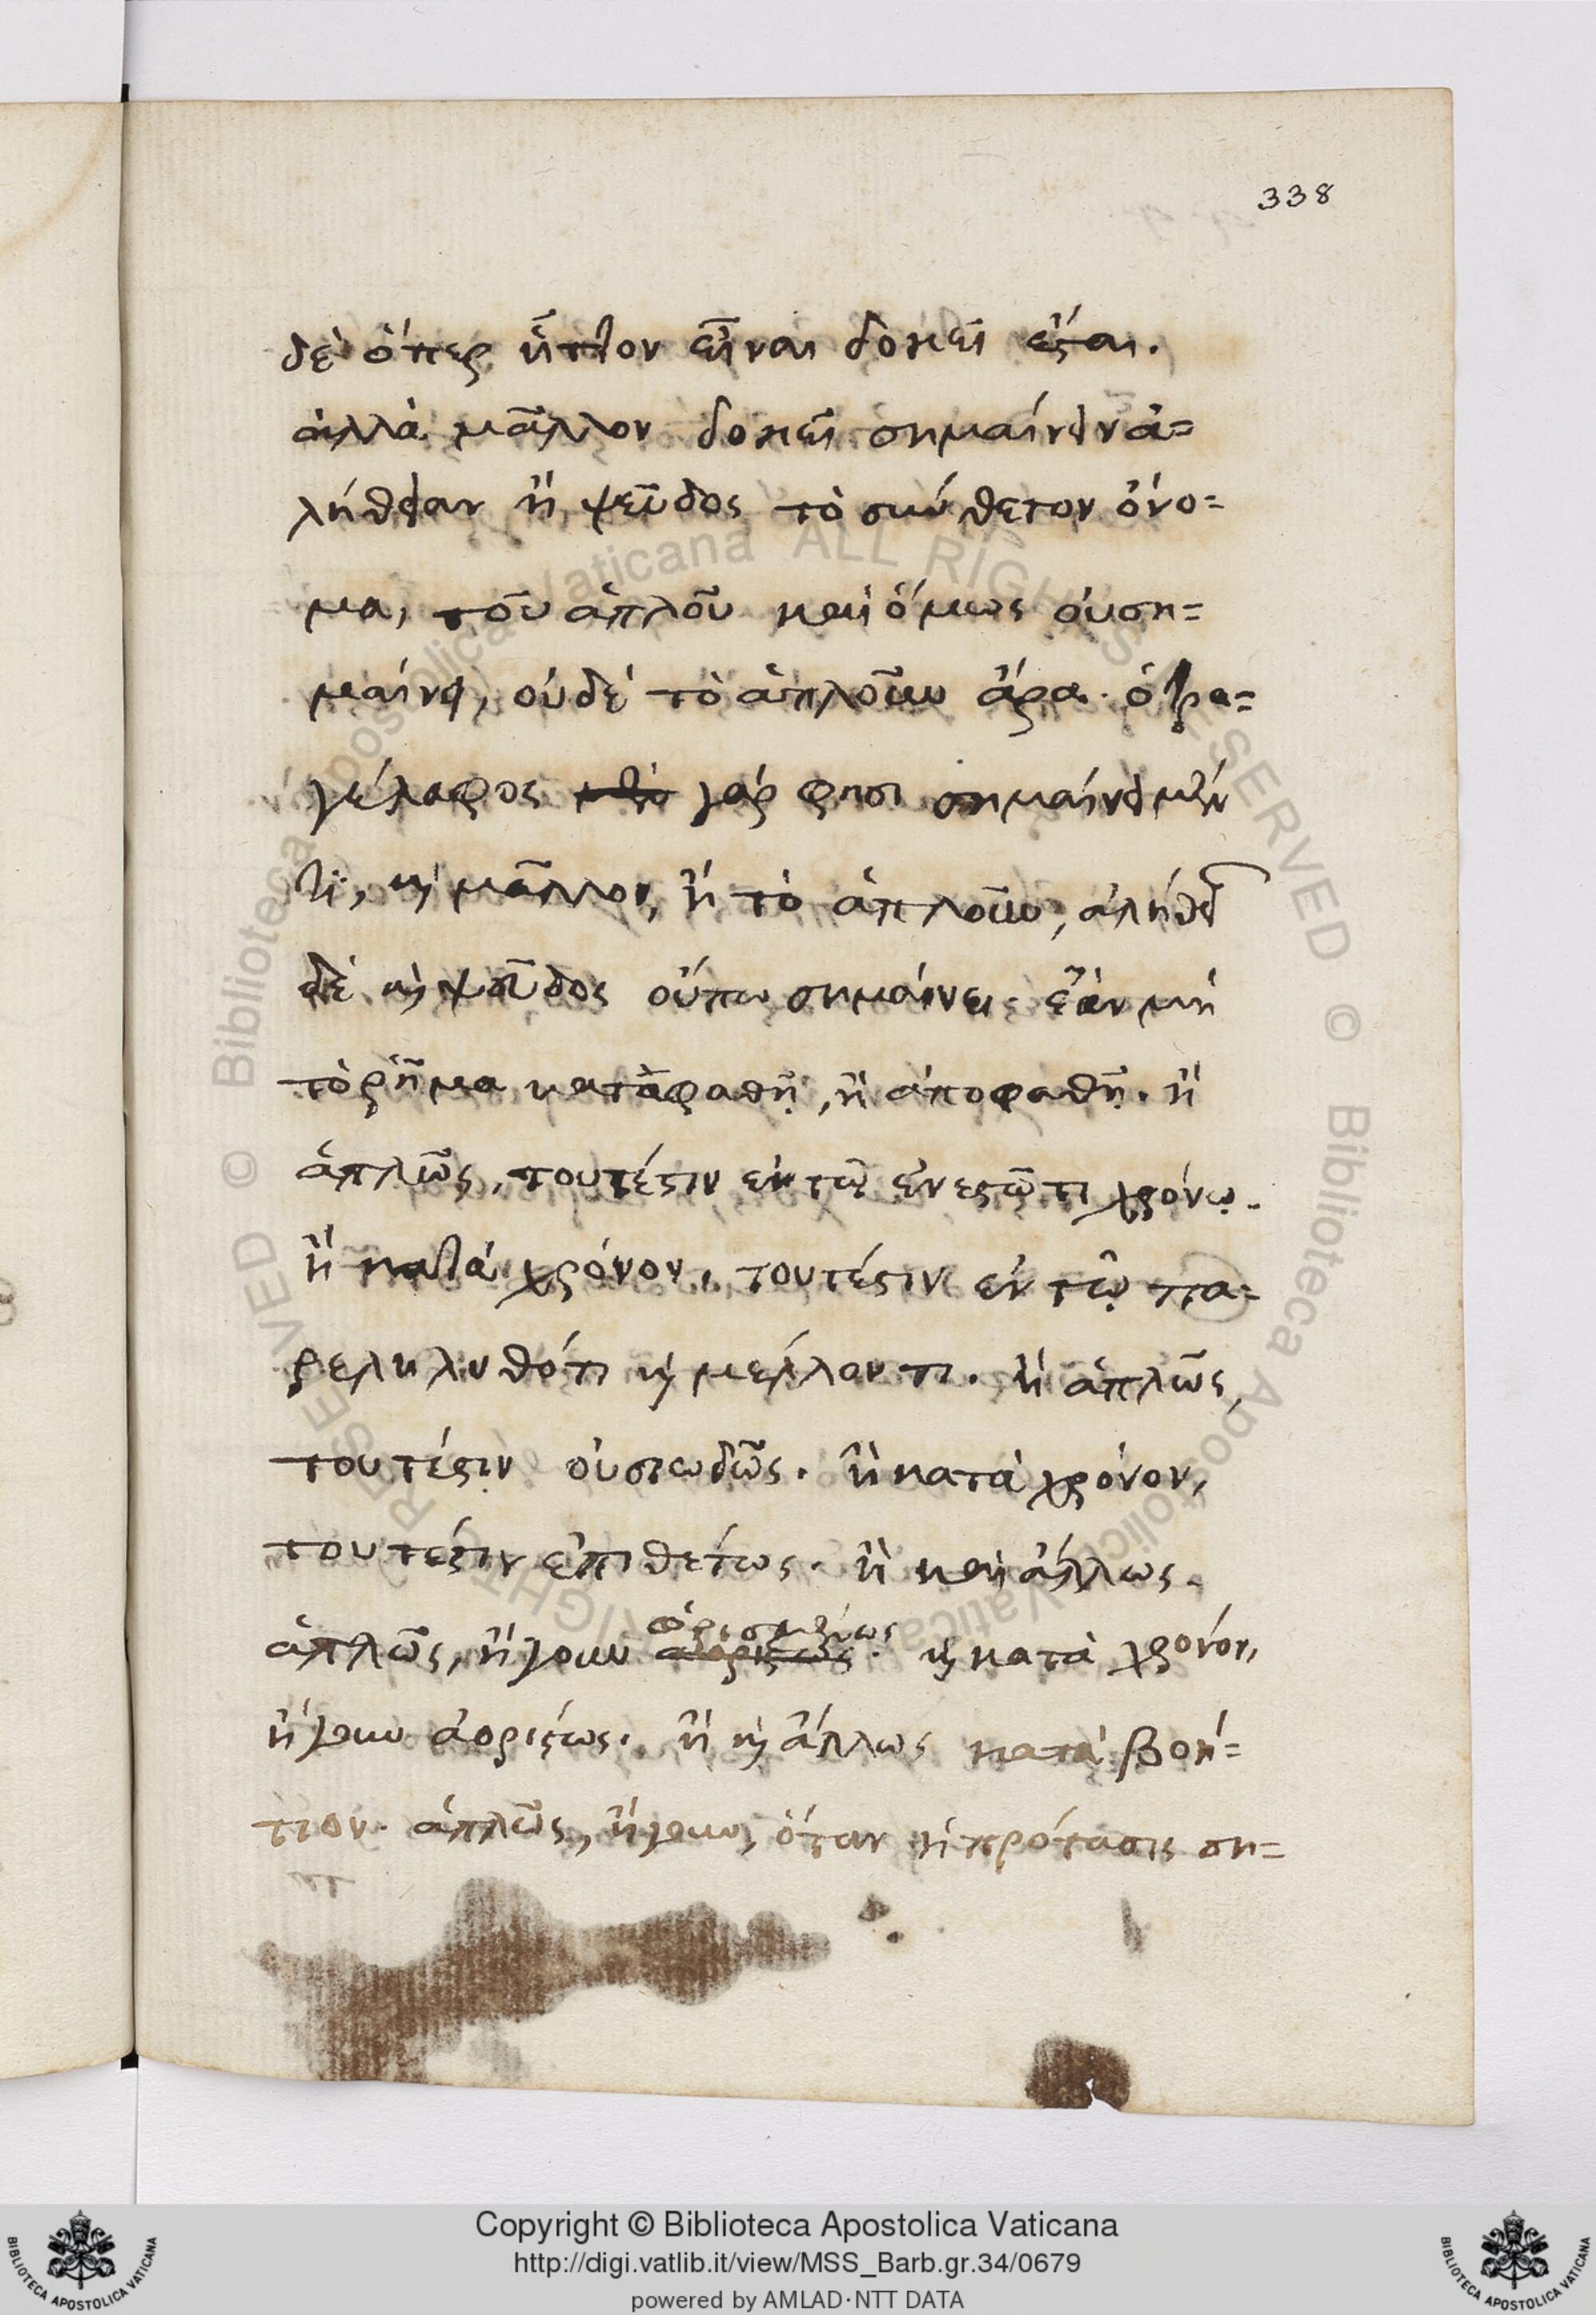 338
δὲ ὅπερ ἧττον εἶναι δοκεῖ ἔσται.
ἀλλὰ μᾶλλον δοκεῖ σημαίνειν ἀ=
λήθειαν ἢ ψεῦδος τὸ σύνθετον ὄνο=
μα, τοῦ ἁπλοῦ καὶ ὅμως οὐ ση=
μαίνει, οὐδὲ τὸ ἁπλοῦν ἄρα. ὁ τρα=
γέλαφος γάρ φησι σημαίνει μέν
τι, καὶ μᾶλλον, ἢ τὸ ἁπλοῦν, ἀληθὲς
δὲ καὶ ψεῦδος οὔπω σημαίνει ἐὰν μὴ
τὸ ῥῆμα καταφαθῇ, ἢ ἀποφαθῇ. ἢ
ἁπλῶς, τουτέστιν ἐν τῷ ἐνεστῶτι χρόνῳ.
ἢ κατὰ χρόνον, τουτέστιν ἐν τῷ πα=
ρεληλυθότι καὶ μέλλοντι. ἢ ἁπλῶς,
τουτέστιν οὐσιωδῶς. ἢ κατὰ χρόνον,
τουτέστιν ἐπιθέτως. ἢ καὶ ἄλλως.
ὡρισμένως
ἁπλῶς, ἤγουν ἀορίστως. καὶ κατὰ χρόνον,
ἤγουν ἀορίστως. ἢ καὶ ἄλλως κατὰ βοή=
τιον. ἁπλῶς, ἤγουν, ὅταν ἡ πρότασις ση=
Copyright © Biblioteca Apostolica Vaticana
http://digi.vatlib.it/view/MSS_Barb.gr.34/0679
powered by AMLAD·NTT DATA
BIBLIOTECA APOSTOLICA VATICANA
BIBLIOTECA APOSTOLICA VATICANA